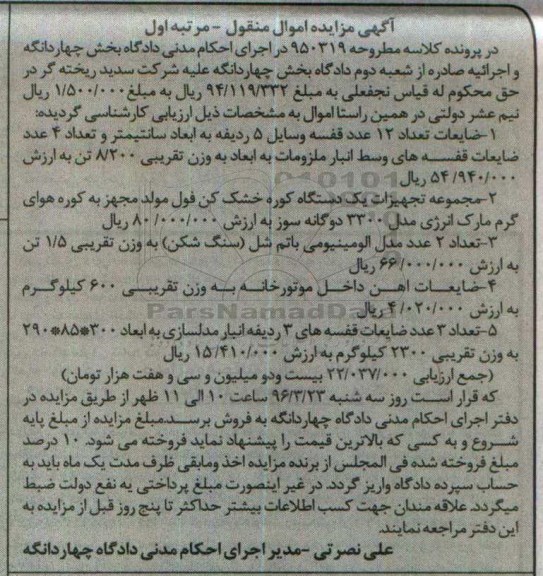 آگهی مزایده اموال منقول - مرتبه اول
در پرونده کلاسه مطروحه ۹۵۰۳۱۹ در اجرای احکام مدنی دادگاه بخش چهاردانگه
و اجرائیه صادره از شعبه دوم دادگاه بخش چهاردانگه علیه شرکت سدید ریخته گر در
حق محکوم له قیاس نجفعلی به مبلغ ۹۴/۱۱۹/۳۳۲ ریال به مبلغ ۱/۵۰۰/۰۰۰ ریال
نیم عشر دولتی در همین راستا اموال به مشخصات ذیل ارزیابی کارشناسی گردیده:
۱-ضایعات تعداد ۱۲ عدد قفسه وسایل ۵ ردیفه به ابعاد سانتیمتر و تعداد ۴ عدد
ضایعات قفسه های وسط انبار ملزومات به ابعاد به وزن تقریبی ۸/۲۰۰ تن به ارزش
۵۴/۹۴۰/۰۰۰ ریال
۲-مجموعه تجهیزات یک دستگاه کوره خشک کن فول مولد مجهز به کوره هوای
گرم مارک انرژی مدل ۳۳۰۰ دوگانه سوز به ارزش ۸۰/۰۰۰/۰۰۰ ریال
۳-تعداد ۲ عدد مدل الومینیومی باتم شل (سنگ شکن) به وزن تقریبی ۱/۵ تن
به ارزش ۶۶/۰۰۰/۰۰۰ ریال
۴-ضایعات اهن داخل موتورخانه به وزن تقریبی ۶۰۰ کیلوگرم
به ارزش ۴/۰۲۰/۰۰۰ ریال
۵-تعداد ۳ عدد ضایعات قفسه های ۳ ردیفه انبار مدلسازی به ابعاد ۳۰۰*۸۵*۲۹۰
به وزن تقریبی ۲۳۰۰ کیلوگرم به ارزش ۱۵/۴۱۰/۰۰۰ ریال
(جمع ارزیابی ۲۲/۰۳۷/۰۰۰ بیست ودو میلیون و سی و هفت هزار تومان)
که قرار است روز سه شنبه ۹۶/۳/۲۳ ساعت ۱۰ الی ۱۱ ظهر از طریق مزایده در
دفتر اجرای احکام مدنی دادگاه چهاردانگه به فروش برسد.مبلغ مزایده از مبلغ پایه
شروع و به کسی که بالاترین قیمت را پیشنهاد نماید فروخته می شود. ۱۰ درصد
مبلغ فروخته شده فی المجلس از برنده مزایده اخذ ومابقی ظرف مدت یک ماه باید به
حساب سپرده دادگاه واریز گردد. در غیر اینصورت مبلغ پرداختی به نفع دولت ضبط
میگردد. علاقه مندان جهت کسب اطلاعات بیشتر حداکثر تا پنج روز قبل از مزایده به
این دفتر مراجعه نمایند.
علی نصرتی - مدیر اجرای احکام مدنی دادگاه چهاردانگه
ParsNamadData